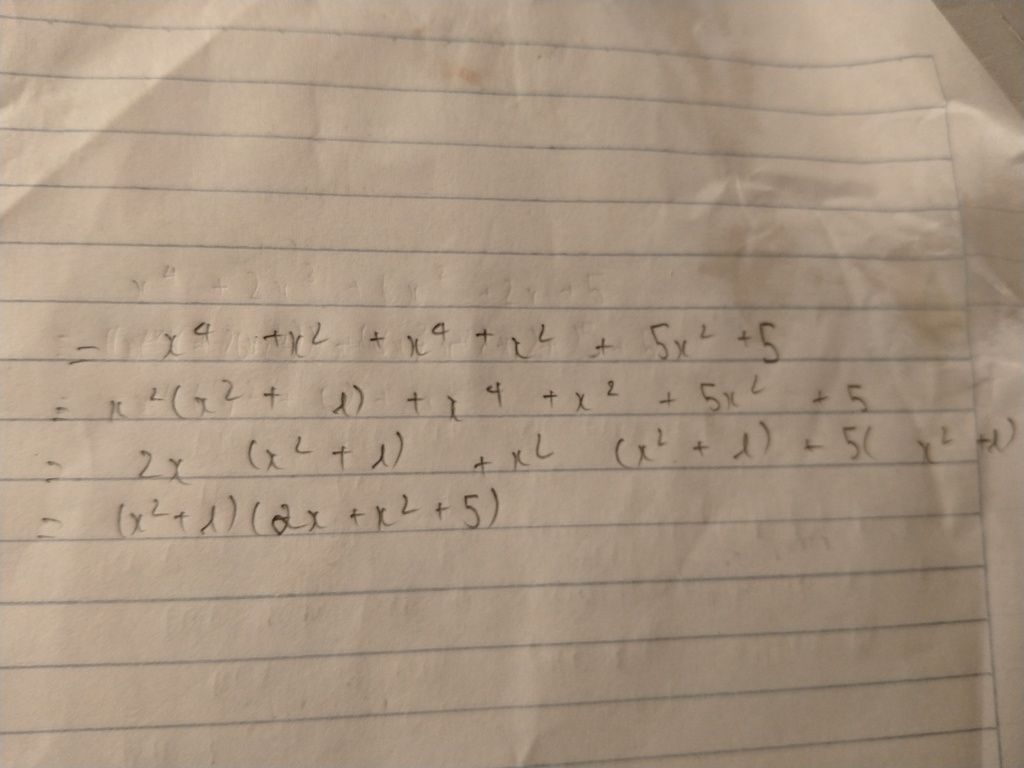 = x⁴ + x² + x⁴ + x² + 5x² + 5
= x²(x² + 1) + x⁴ + x² + 5x² + 5
= 2x (x² + 1) + x² (x² + 1) + 5( x² + 1)
= (x² + 1)(2x + x² + 5)